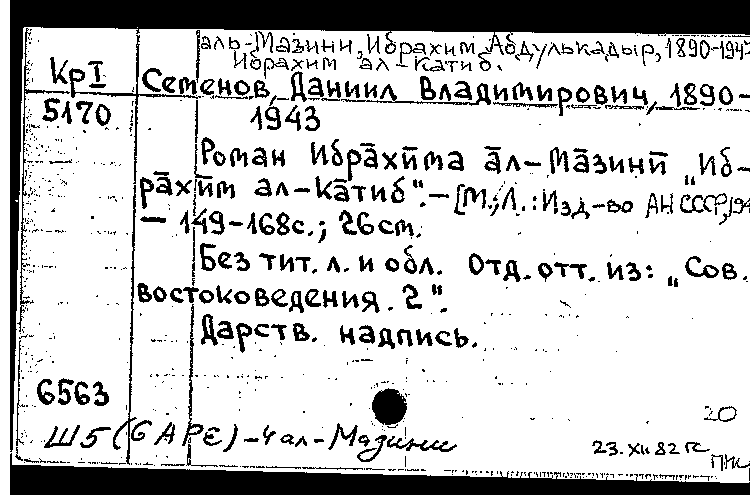 аль-Мазини, Ибрахим Абдулькадыр, 1890-194
Ибрахим ал-Катиб.
КрI
Семенов, Даниил Владимирович, 1890-
5170
1943
Роман Ибрāхӣма āл-Мāзинӣ „Иб-
рāхӣм ал-Кāтиб". - [М.; Л.: Изд-во АН СССР, 194
- 149-168с.; 26см.
Без тит. л. и обл. Отд. отт. из: „Сов.
востоковедения. 2".
Дарств. надпись.
6563
20
Ш5(6АРЕ)-4 ал-Мазини
23.XII 82